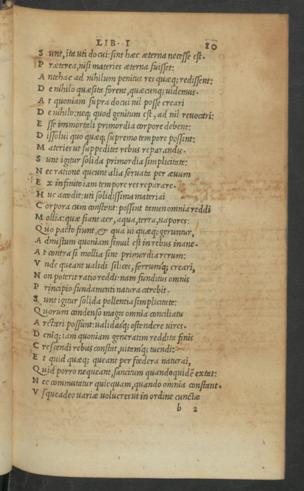 LIB. I 10
S unt, ita uti docui: sint hæc æterna necesse est.
P ræterea, nisi materies æterna fuisset:
A ntehac ad nihilum penitus res quæq; redissent:
D e nihilo quæ site forent, quæcunq; uidemus.
A t quoniam supra docui nil posse creari
D e nihilo: neq; quod genitum est, ad nil reuocari:
E sse immortali primordia corpore debent:
D issolui quo quæq; supremo tempore possint:
M ateries ut suppeditet rebus reparandis.
S unt igitur solida primordia simplicitate:
N ec ratione queunt alia seruata per æuum
E x infinito iam tempore res reparare.
H uc accedit: uti solidissima materiai
C orpora cum constent: possint tamen omnia reddi
M ollia: quæ fiant aer, aqua, terra, uapores:
Q uo pacto fiunt, & qua ui quæq; geruntur,
A dmistum quoniam simul est in rebus inane.
A t contra si mollia sint primordia rerum:
V nde queant ualidi silices, ferrumq; creari,
N on poterit ratio reddi: nam funditus omnis
P rincipio fundamenti natura carebit.
S unt igitur solida pollentia simplicitate:
Q uorum condenso magis omnia conciliatu
A rctari possunt: ualidasq; ostendere uires.
D eniq; iam quoniam generatim reddita finis
C rescendi rebus constat, uitamq; tuendi:
E t quid quæq; queant per fœdera naturai,
Q uid porro nequeant, sancitum quandoquidẽ extat:
N ec commutatur quicquam, quando omnia constant.
V squeadeo uariæ uolucres ut in ordine cunctæ
b 2